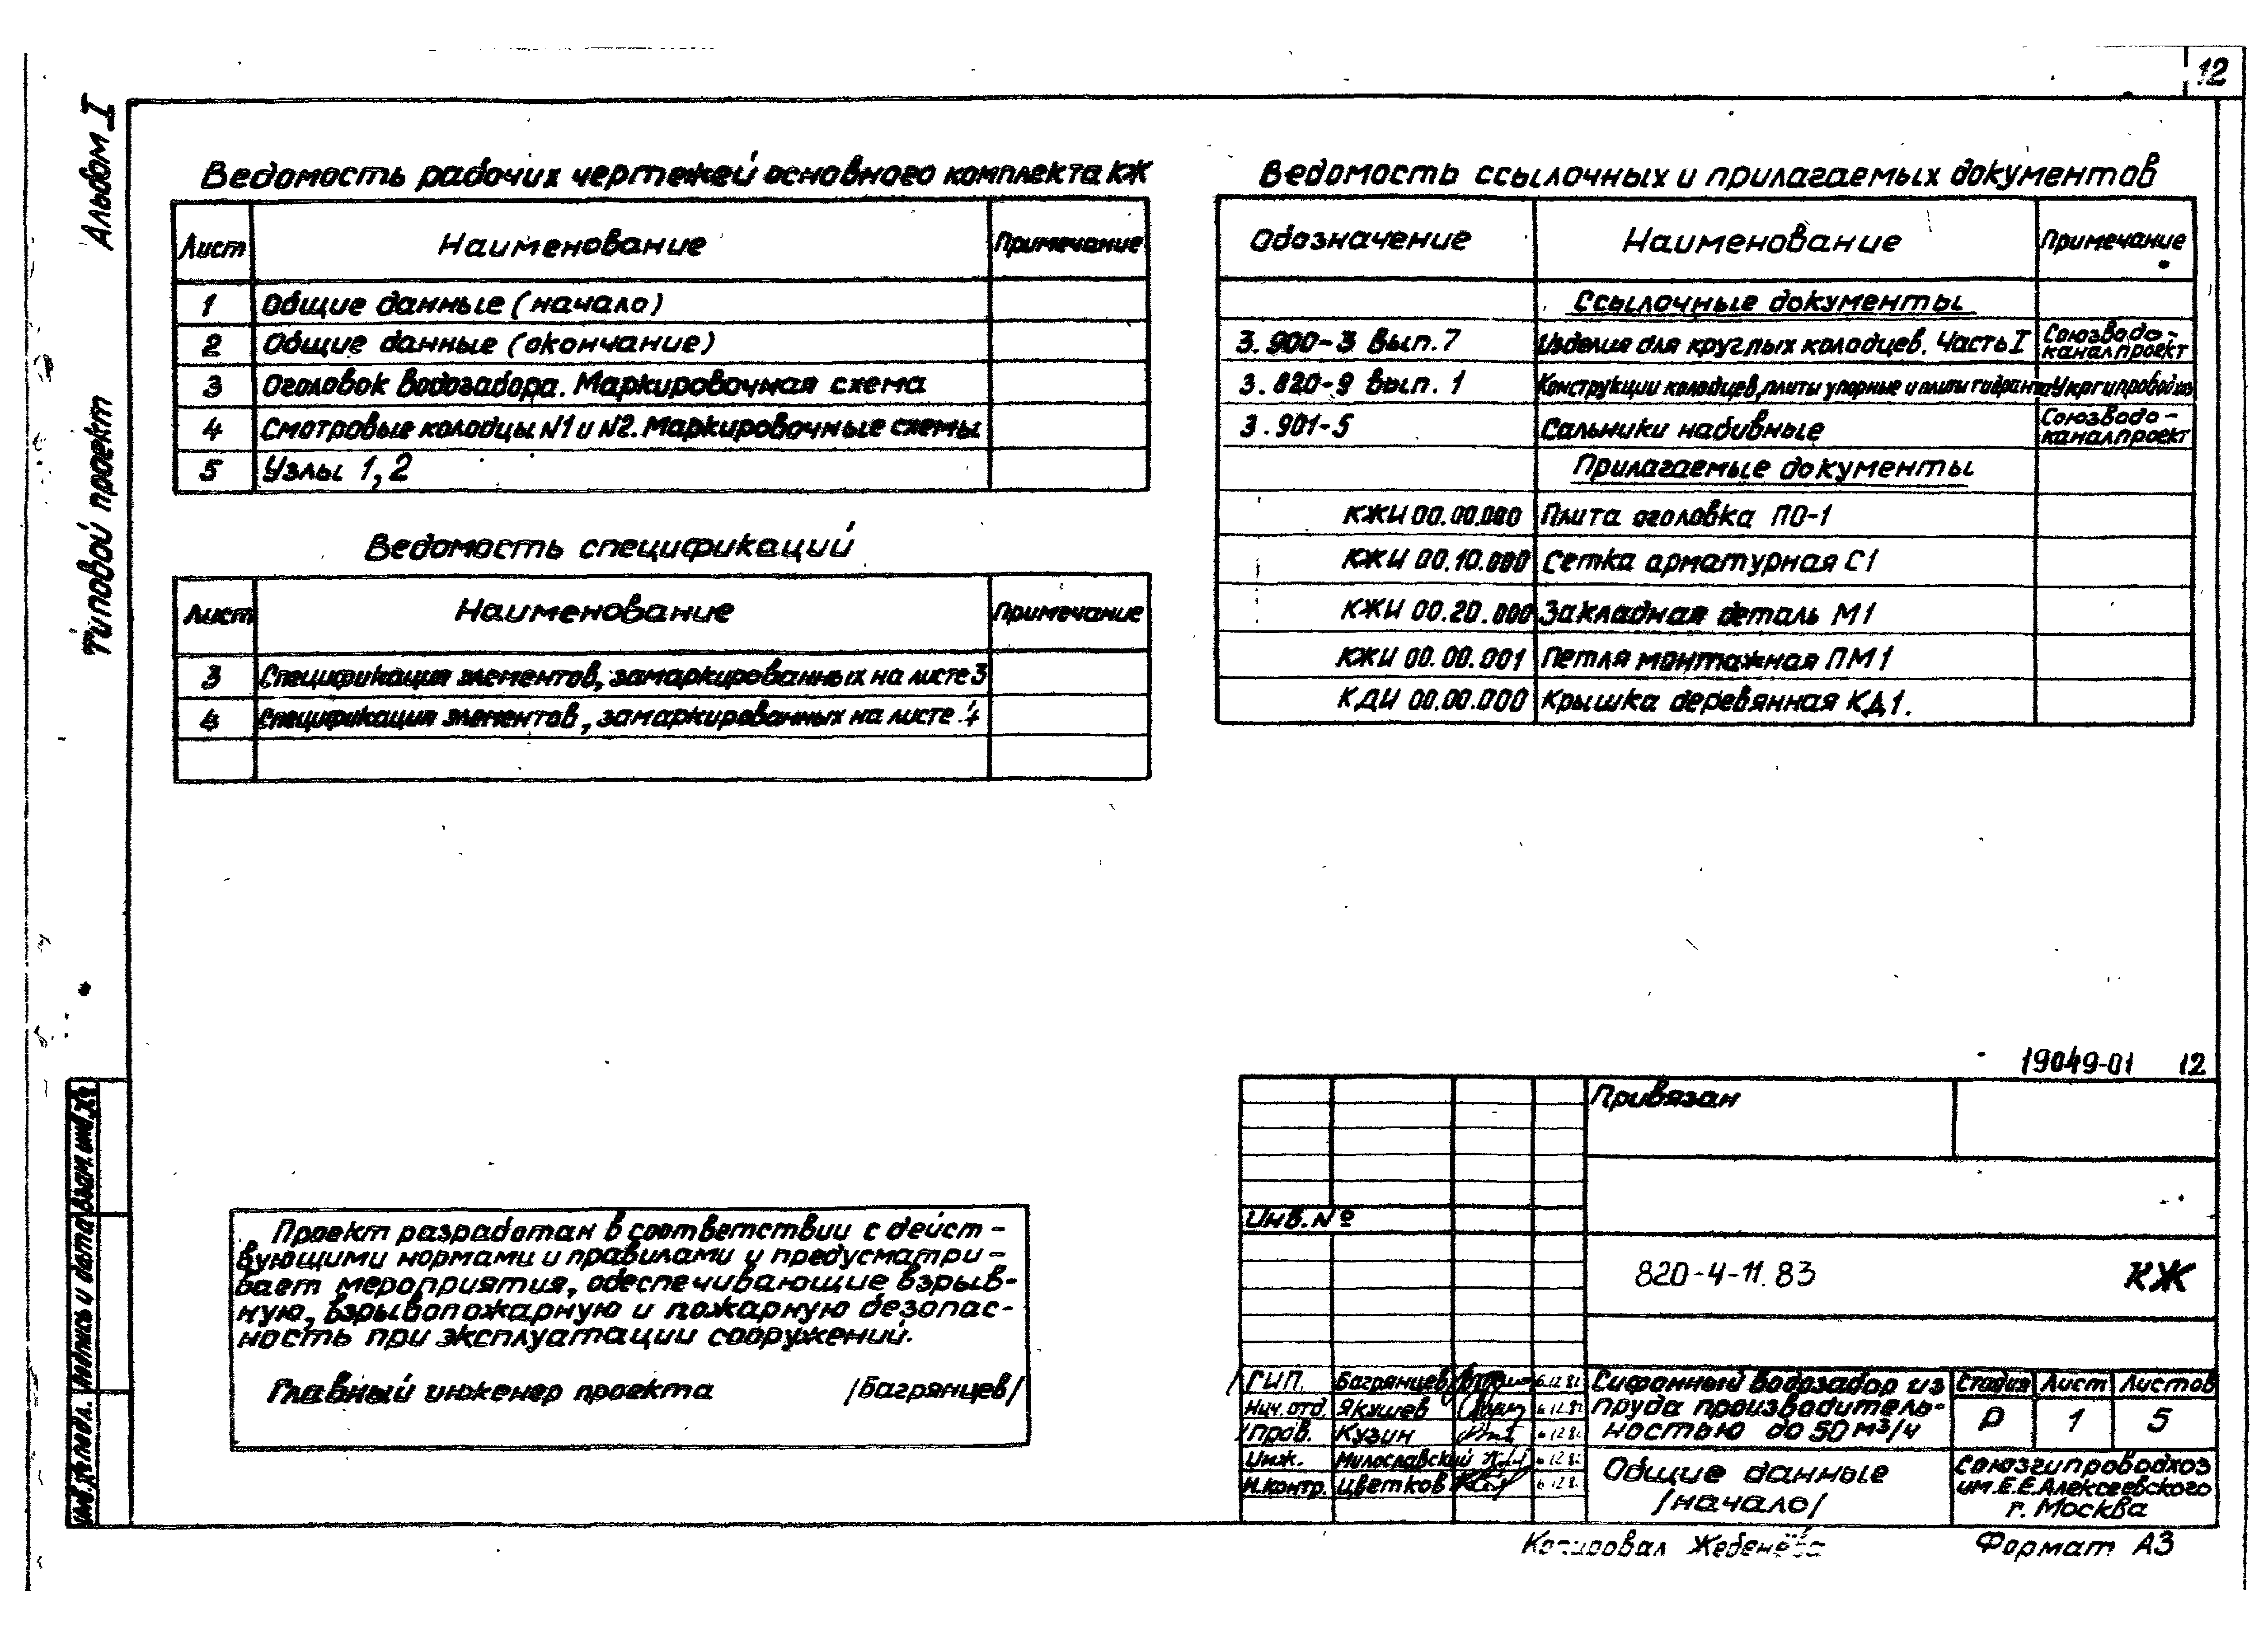 12
Альбом I
Типовой проект
Ведомость рабочих чертежей основного комплекта КЖ
Лист Наименование Примечание
1 Общие данные (начало)
2 Общие данные (окончание)
3 Оголовок водозабора. Маркировочная схема
4 Смотровые колодцы N1 и N2. Маркировочные схемы
5 Узлы 1, 2
Ведомость спецификаций
Лист Наименование Примечание
3 Спецификация элементов, замаркированных на листе 3
4 Спецификация элементов, замаркированных на листе 4
Ведомость ссылочных и прилагаемых документов
Обозначение Наименование Примечание
Ссылочные документы
3.900-3 Вып. 7 Изделия для круглых колодцев. Часть I Союзводо-
каналпроект
3.820-9 Вып. 1 Конструкции колодцев, плиты упорные и плиты гидранта Укргипроводхоз
3.901-5 Сальники набивные Союзводо-
каналпроект
Прилагаемые документы
КЖИ 00.00.000 Плита оголовка ПО-1
КЖИ 00.10.000 Сетка арматурная С1
КЖИ 00.20.000 Закладная деталь М1
КЖИ 00.00.001 Петля монтажная ПМ1
КДИ 00.00.000 Крышка деревянная КД1.
Проект разработан в соответствии с дейст-
вующими нормами и правилами и предусматри-
вает мероприятия, обеспечивающие взрыв-
ную, взрывопожарную и пожарную безопас-
ность при эксплуатации сооружений.
Главный инженер проекта /Багрянцев/
19049-01 12
Привязан
Инв. №
820-4-11.83 КЖ
ГИП. Багрянцев 6.12.82
Нач. отд. Якушев 6.12.82
Пров. Кузин 6.12.82
Инж. Милославский 6.12.82
Н.контр. Цветков 6.12.82
Сифонный водозабор из
пруда производитель-
ностью до 50 м³/ч
Стадия Лист Листов
Р 1 5
Общие данные
/начало/
Союзгипроводхоз
им. Е.Е.Алексеевского
г. Москва
Взам. инв. №
Подпись и дата
Инв. № подл.
Копировал Жебенёва Формат А3